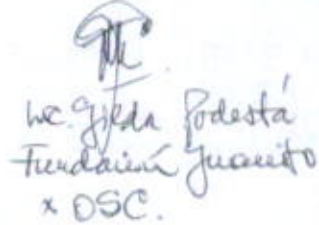 Lic. Gilda Podestá
Fundación Juanito
x OSC.